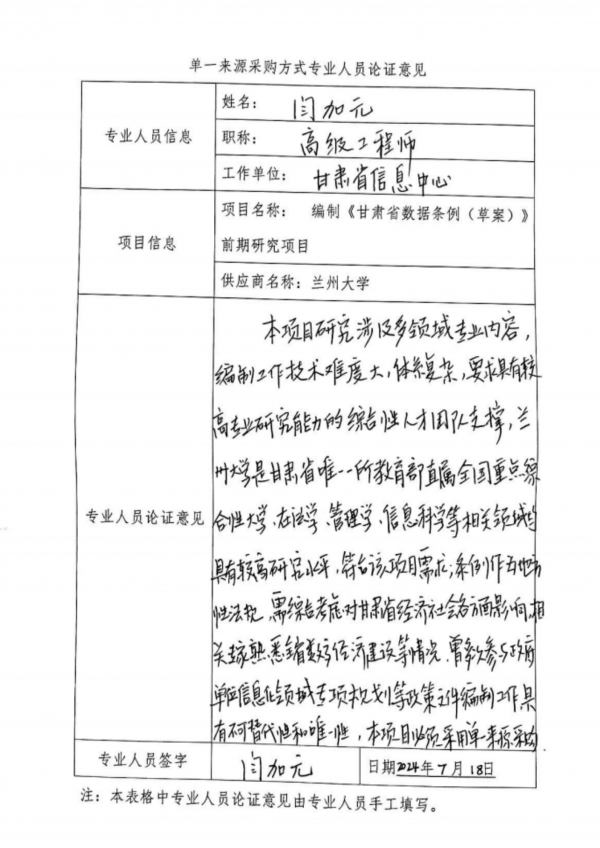 单一来源采购方式专业人员论证意见
专业人员信息
姓名：闫加元
职称：高级工程师
工作单位：甘肃省信息中心
项目信息
项目名称：编制《甘肃省数据条例（草案）》
前期研究项目
供应商名称：兰州大学
专业人员论证意见
本项目研究涉及多领域专业内容，
编制工作技术难度大，体系复杂，要求具有较
高专业研究能力的综合性人才团队支撑，兰
州大学是甘肃省唯一一所教育部直属全国重点综
合性大学，在法学、管理学、信息科学等相关领域均
具有较高研究水平，符合该项目需求；条例作为地方
性法规，需综合考虑对甘肃省经济社会各方面影响，相
关专家熟悉我省数字经济建设等情况，曾多次参与政府
单位信息化领域专项规划等政策文件编制工作，具
有不可替代性和唯一性，本项目必须采用单一来源采购
专业人员签字
闫加元
日期2024年7月18日
注：本表格中专业人员论证意见由专业人员手工填写。